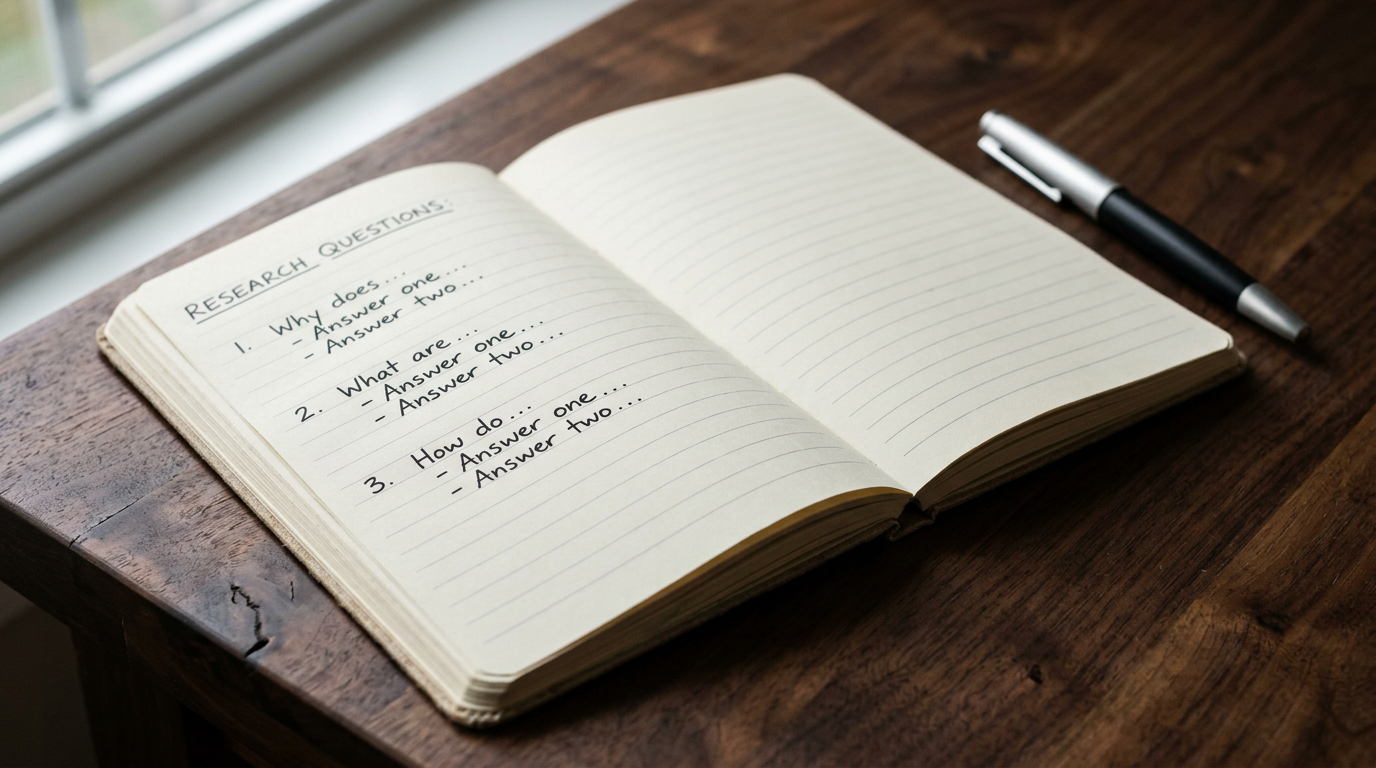 RESEARCH QUESTIONS:
1. Why does...
- Answer one...
- Answer two...
2. What are...
- Answer one...
- Answer two...
3. How do...
- Answer one...
- Answer two...